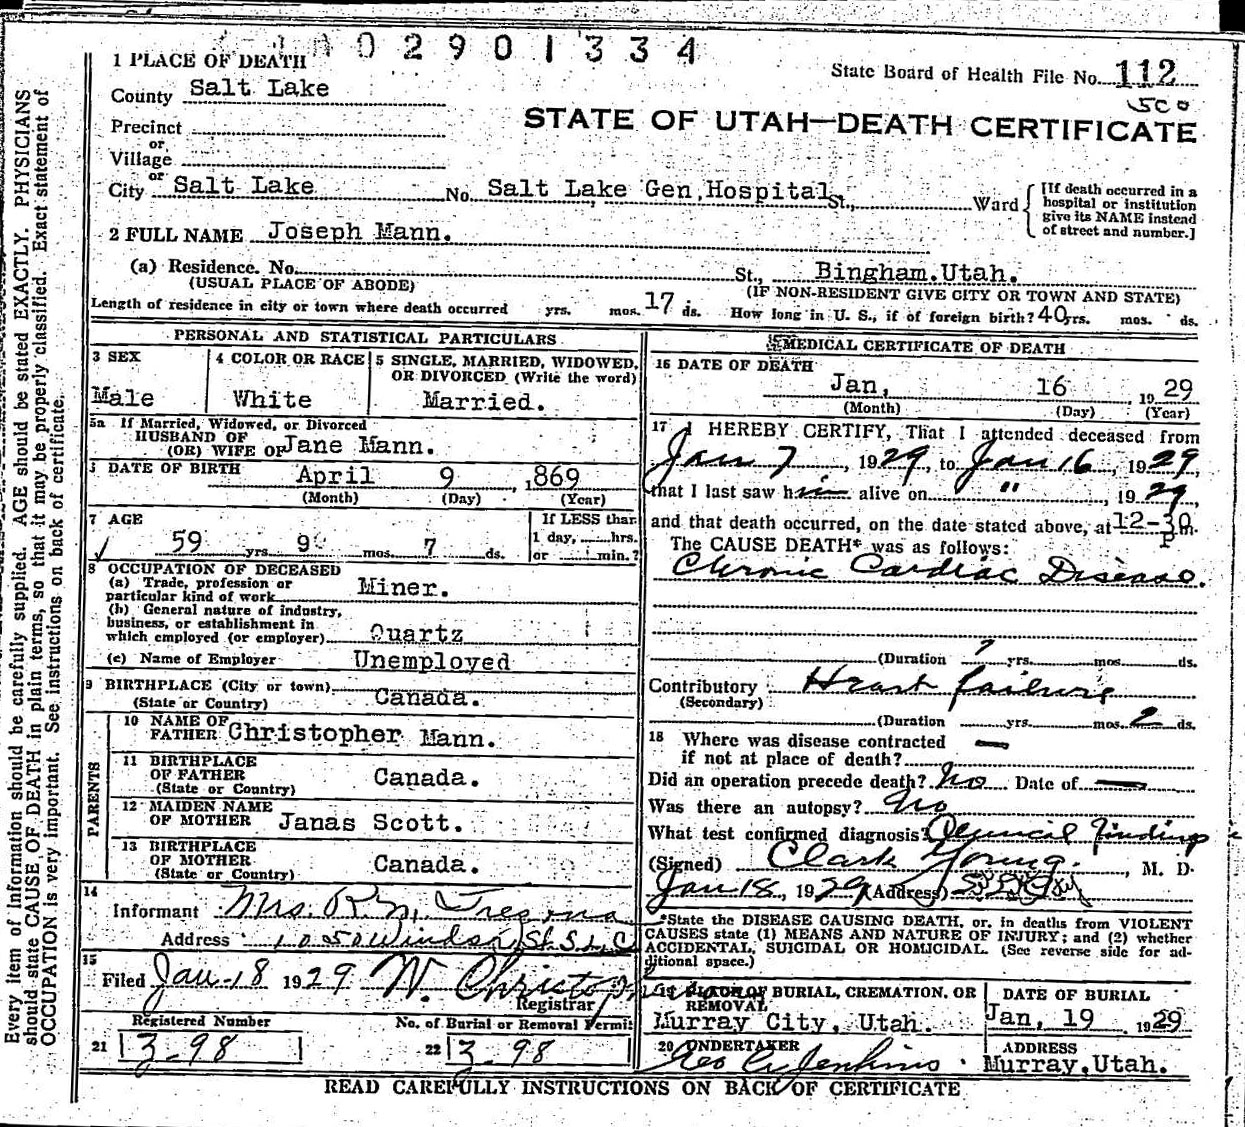 02901334
1 PLACE OF DEATH
State Board of Health File No. 112
County Salt Lake
STATE OF UTAH—DEATH CERTIFICATE
Precinct
or
Village
or
City Salt Lake No. Salt Lake Gen,Hospital St., Ward
[If death occurred in a
hospital or institution
give its NAME instead
of street and number.]
2 FULL NAME Joseph Mann.
(a) Residence. No. St., Bingham.Utah.
(USUAL PLACE OF ABODE) (IF NON-RESIDENT GIVE CITY OR TOWN AND STATE)
Length of residence in city or town where death occurred yrs. mos. 17 ds. How long in U. S., if of foreign birth? 40 yrs. mos. ds.
PERSONAL AND STATISTICAL PARTICULARS
3 SEX
Male
4 COLOR OR RACE
White
5 SINGLE, MARRIED, WIDOWED,
OR DIVORCED (Write the word)
Married.
5a If Married, Widowed, or Divorced
HUSBAND OF
(OR) WIFE OF Jane Mann.
DATE OF BIRTH April 9 , 1869
(Month) (Day) (Year)
7 AGE
59 yrs 9 mos. 7 ds.
If LESS than
1 day, hrs.
or min.?
8 OCCUPATION OF DECEASED
(a) Trade, profession or
particular kind of work Miner.
(b) General nature of industry,
business, or establishment in
which employed (or employer) Quartz
(c) Name of Employer Unemployed
9 BIRTHPLACE (City or town)
(State or Country) Canada.
PARENTS
10 NAME OF
FATHER Christopher Mann.
11 BIRTHPLACE
OF FATHER
(State or Country) Canada.
12 MAIDEN NAME
OF MOTHER Janas Scott.
13 BIRTHPLACE
OF MOTHER
(State or Country) Canada.
14
Informant Mrs. R. Tregona
Address 1050 Windsor St. S. L. C
15
Filed Jan-18 1929 W. Christopherson
Registrar
Registered Number
21 3-98
No. of Burial or Removal Permit
22 3-98
MEDICAL CERTIFICATE OF DEATH
16 DATE OF DEATH
Jan, 16 1929
(Month) (Day) (Year)
17 I HEREBY CERTIFY, That I attended deceased from
Jan 7, 1929, to Jan 16, 1929,
that I last saw him alive on " , 1929,
and that death occurred, on the date stated above, at 12-30 P m.
The CAUSE DEATH* was as follows:
Chronic Cardiac Disease.
(Duration ? yrs. mos. ds.
Contributory Heart failure
(Secondary)
(Duration yrs. mos. 2 ds.
18 Where was disease contracted —
if not at place of death?
Did an operation precede death? No Date of —
Was there an autopsy? No
What test confirmed diagnosis? Clinical findings
(Signed) Clark Young. , M. D.
Jan 18, 1929 (Address)
*State the DISEASE CAUSING DEATH, or, in deaths from VIOLENT
CAUSES state (1) MEANS AND NATURE OF INJURY; and (2) whether
ACCIDENTAL, SUICIDAL OR HOMICIDAL. (See reverse side for ad-
ditional space.)
19 PLACE OF BURIAL, CREMATION, OR
REMOVAL
Murray City, Utah.
DATE OF BURIAL
Jan, 19 1929
20 UNDERTAKER
Geo C Jenkins
ADDRESS
Murray,Utah.
READ CAREFULLY INSTRUCTIONS ON BACK OF CERTIFICATE
Every item of information should be carefully supplied. AGE should be stated EXACTLY. PHYSICIANS
should state CAUSE OF DEATH in plain terms, so that it may be properly classified. Exact statement of
OCCUPATION is very important. See instructions on back of certificate.